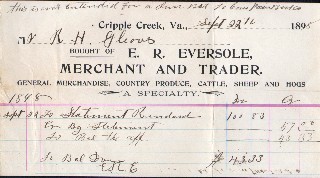 this is not intended for a dun but to
Cripple Creek, Va., Sept 22 1898
Mr R. H. Gleaves
BOUGHT OF E. R. EVERSOLE,
MERCHANT AND TRADER.
GENERAL MERCHANDISE, COUNTRY PRODUCE, CATTLE, SHEEP AND HOGS
A SPECIALTY.
1898 Dr Cr
Sept 22 To Statement Rendered 100 83
By Statement 57 50
To Bal
To Bal Due $ 43.33
E R E